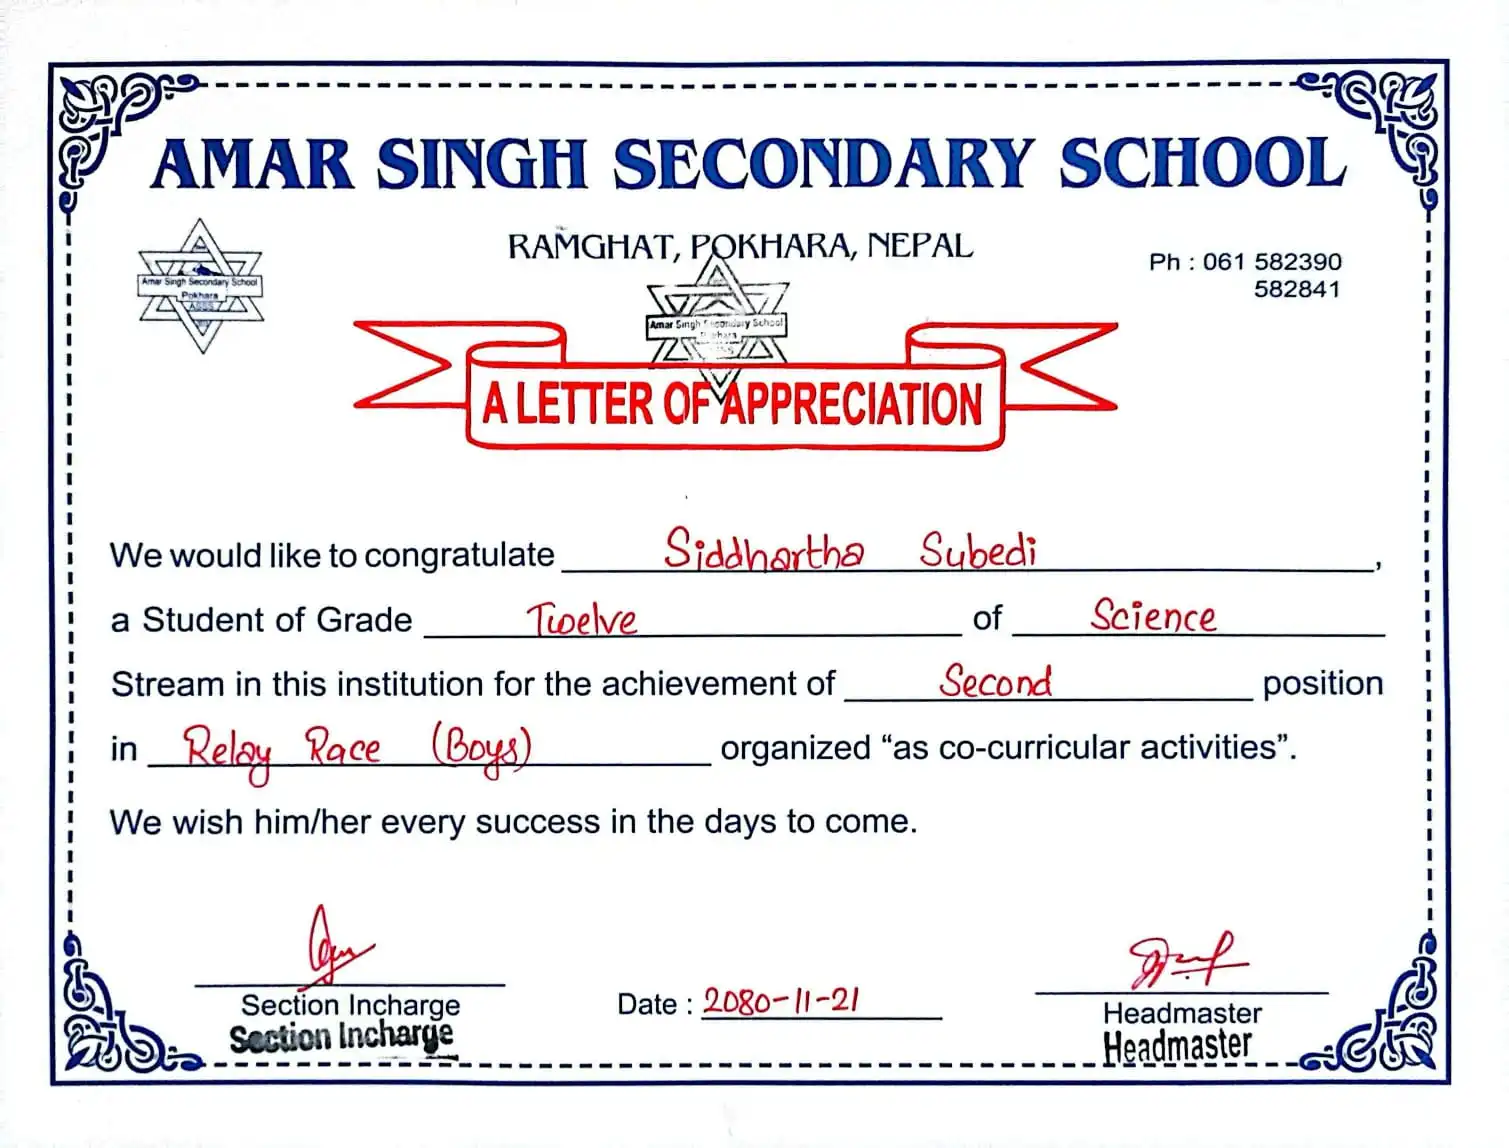 AMAR SINGH SECONDARY SCHOOL
RAMGHAT, POKHARA, NEPAL
Ph : 061 582390
582841
Amar Singh Secondary School
Pokhara
ASSS
Amar Singh Secondary School
Pokhara
A LETTER OF APPRECIATION
We would like to congratulate Siddhartha Subedi,
a Student of Grade Twelve of Science
Stream in this institution for the achievement of Second position
in Relay Race (Boys) organized “as co-curricular activities”.
We wish him/her every success in the days to come.
Section Incharge
Section Incharge
Date : 2080-11-21
Headmaster
Headmaster